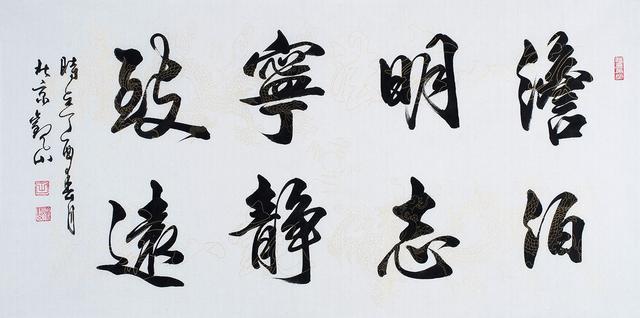 澹泊
明志
寧静
致遠
時在丁酉春月
北京觀山